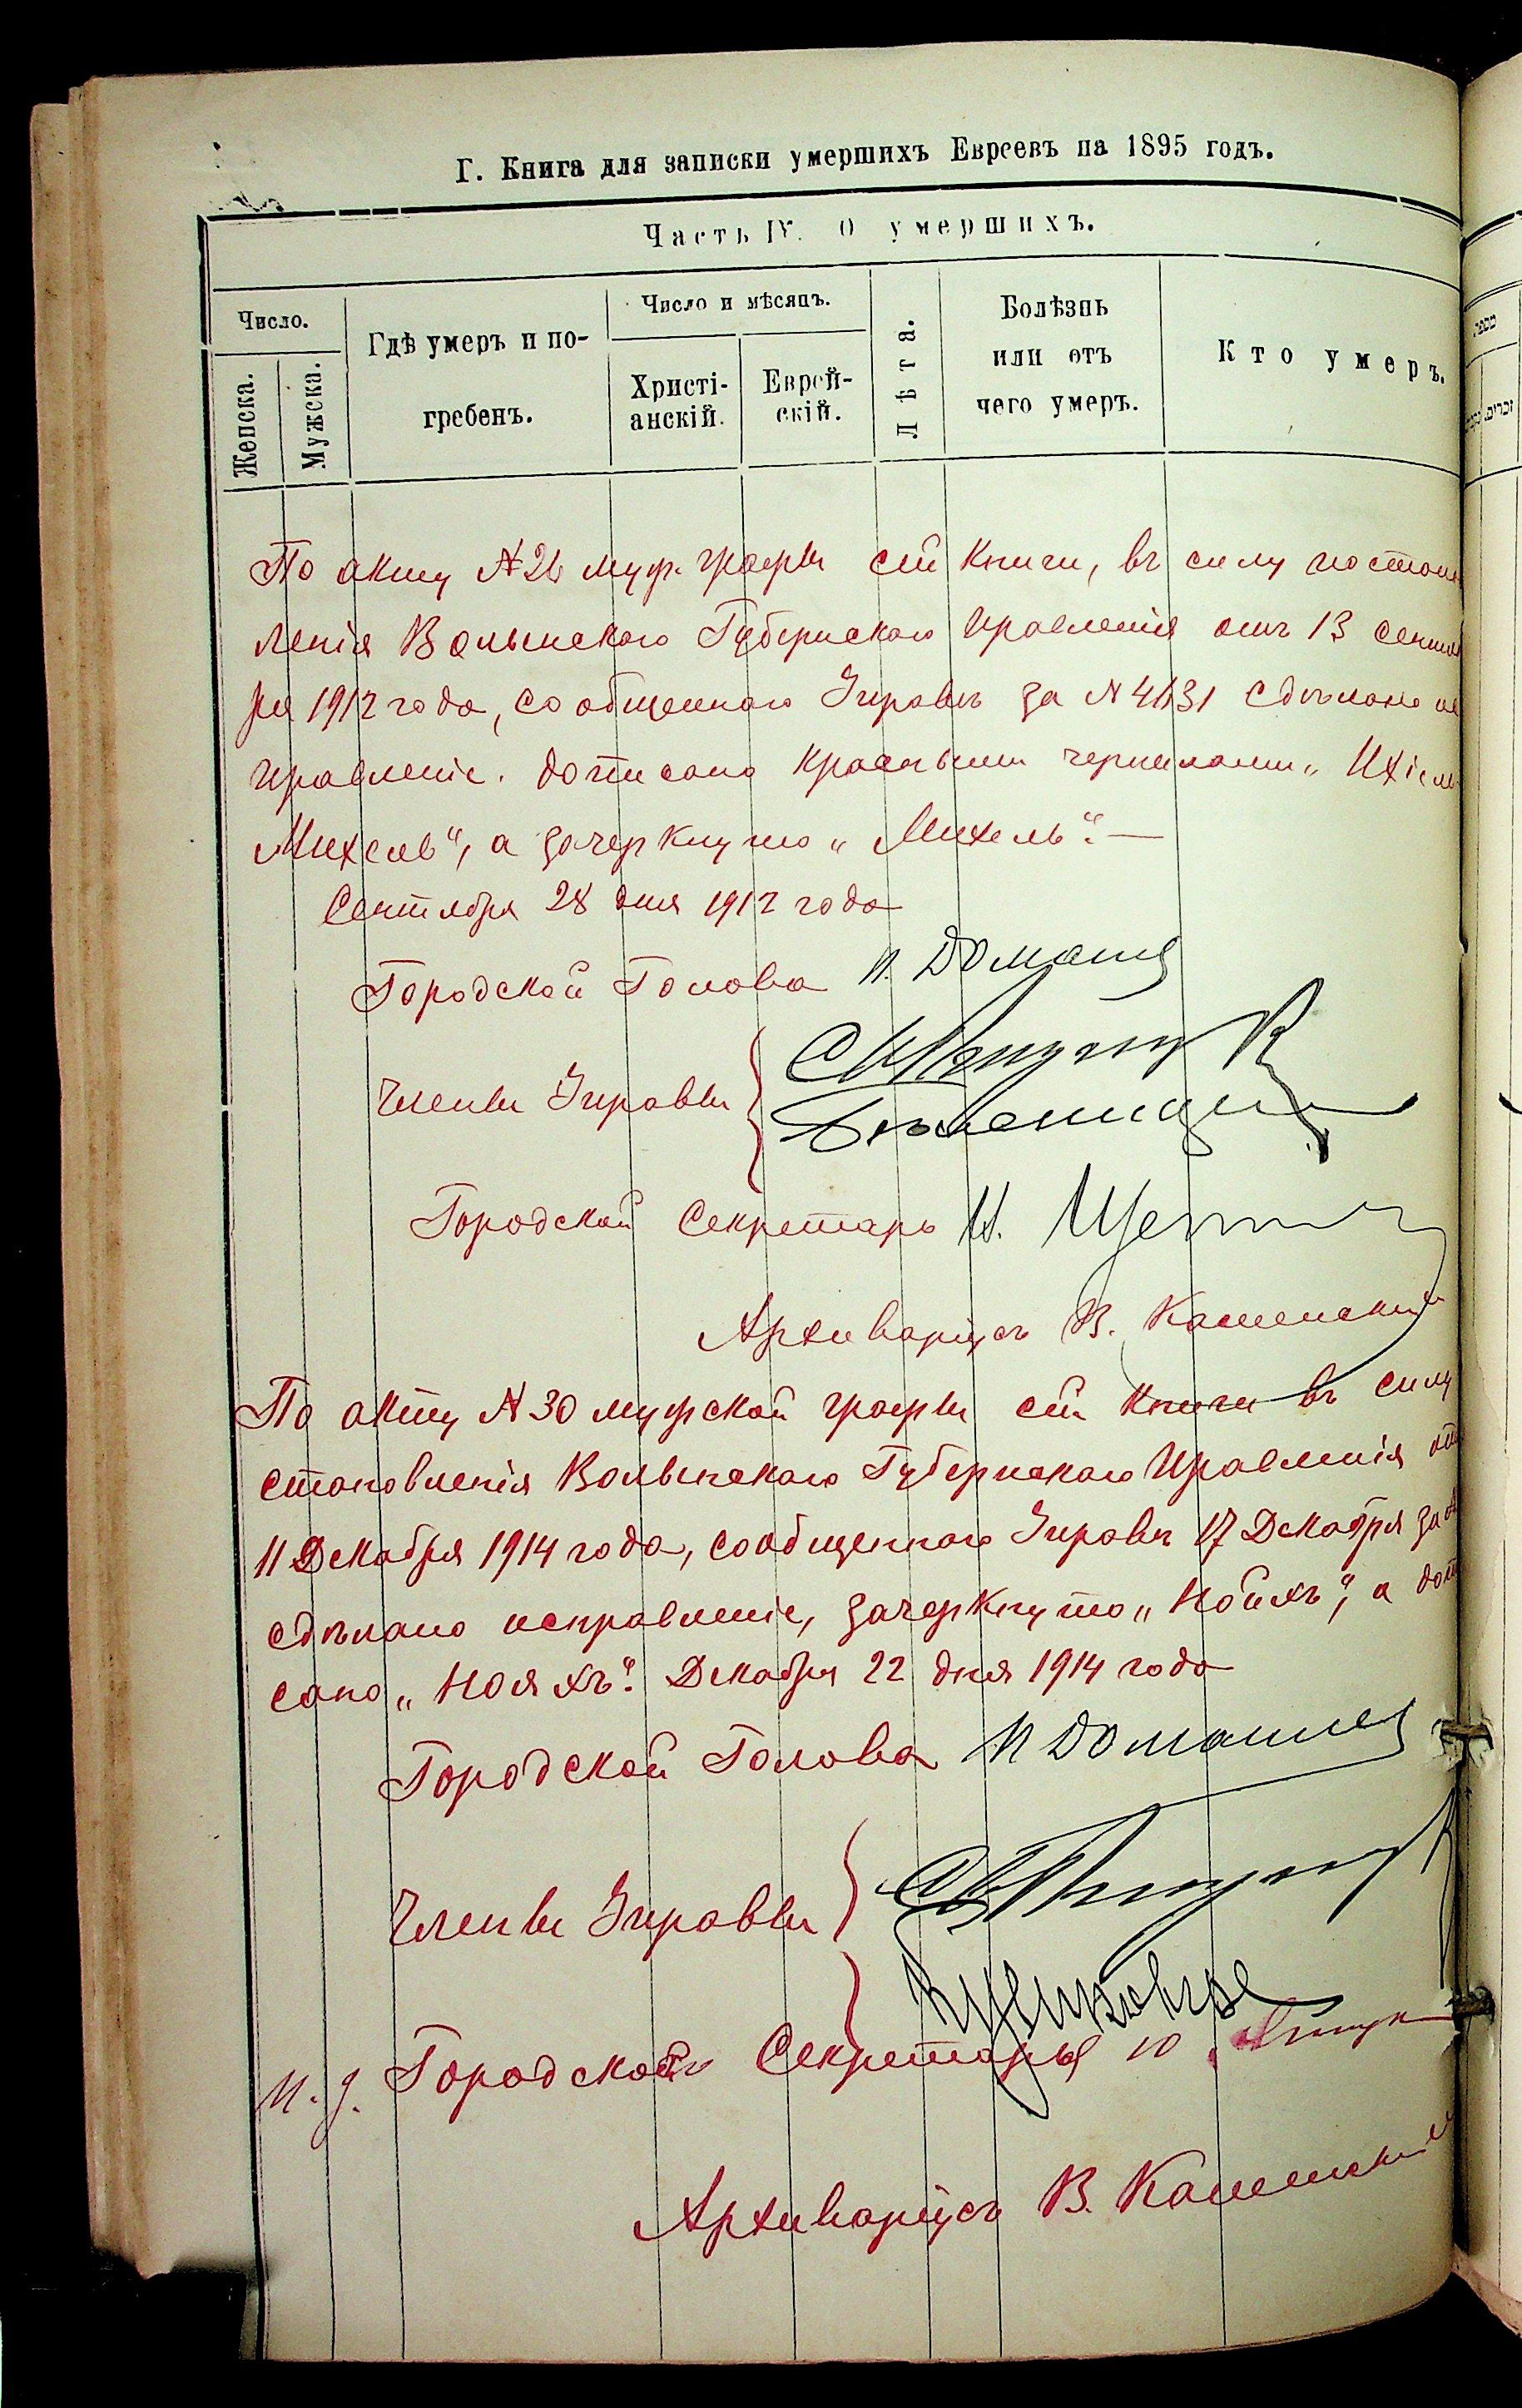 Г. Книга для записки умершихъ Евреевъ на 1895 годъ.
Часть IV. О умершихъ.
Число.
Женска.
Мужска.
Гдѣ умеръ и по-
гребенъ.
Число и мѣсяцъ.
Христі-
анскій.
Еврей-
скій.
Лѣта.
Болѣзнь
или отъ
чего умеръ.
Кто умеръ.
По акту № 26 муж. графы сей книги, въ силу постанов
ленія Волынскаго Губернскаго Правленія отъ 13 сентяб
ря 1912 года, сообщеннаго Управѣ за № 4631 сдѣлано ис
правленіе. дописано красными чернилами „Ихіель
Михель“, а зачеркнуто „Михель“. —
Сентября 28 дня 1912 года
Городской Голова П. Доманец
Члены Управы
Городской Секретарь И.
Архиваріусъ В. Каменскій
По акту № 30 мужской графы сей книги въ силу
становленія Волынскаго Губернскаго Правленія от
11 Декабря 1914 года, сообщеннаго Управѣ 17 Декабря за №
сдѣлано исправленіе, зачеркнуто „Нойхъ“, а допи
сано „Нояхъ“. Декабря 22 дня 1914 года
Городской Голова П Доманец
Члены Управы
И. д. Городского Секретаря Ю.
Архиваріусъ В. Каменскій